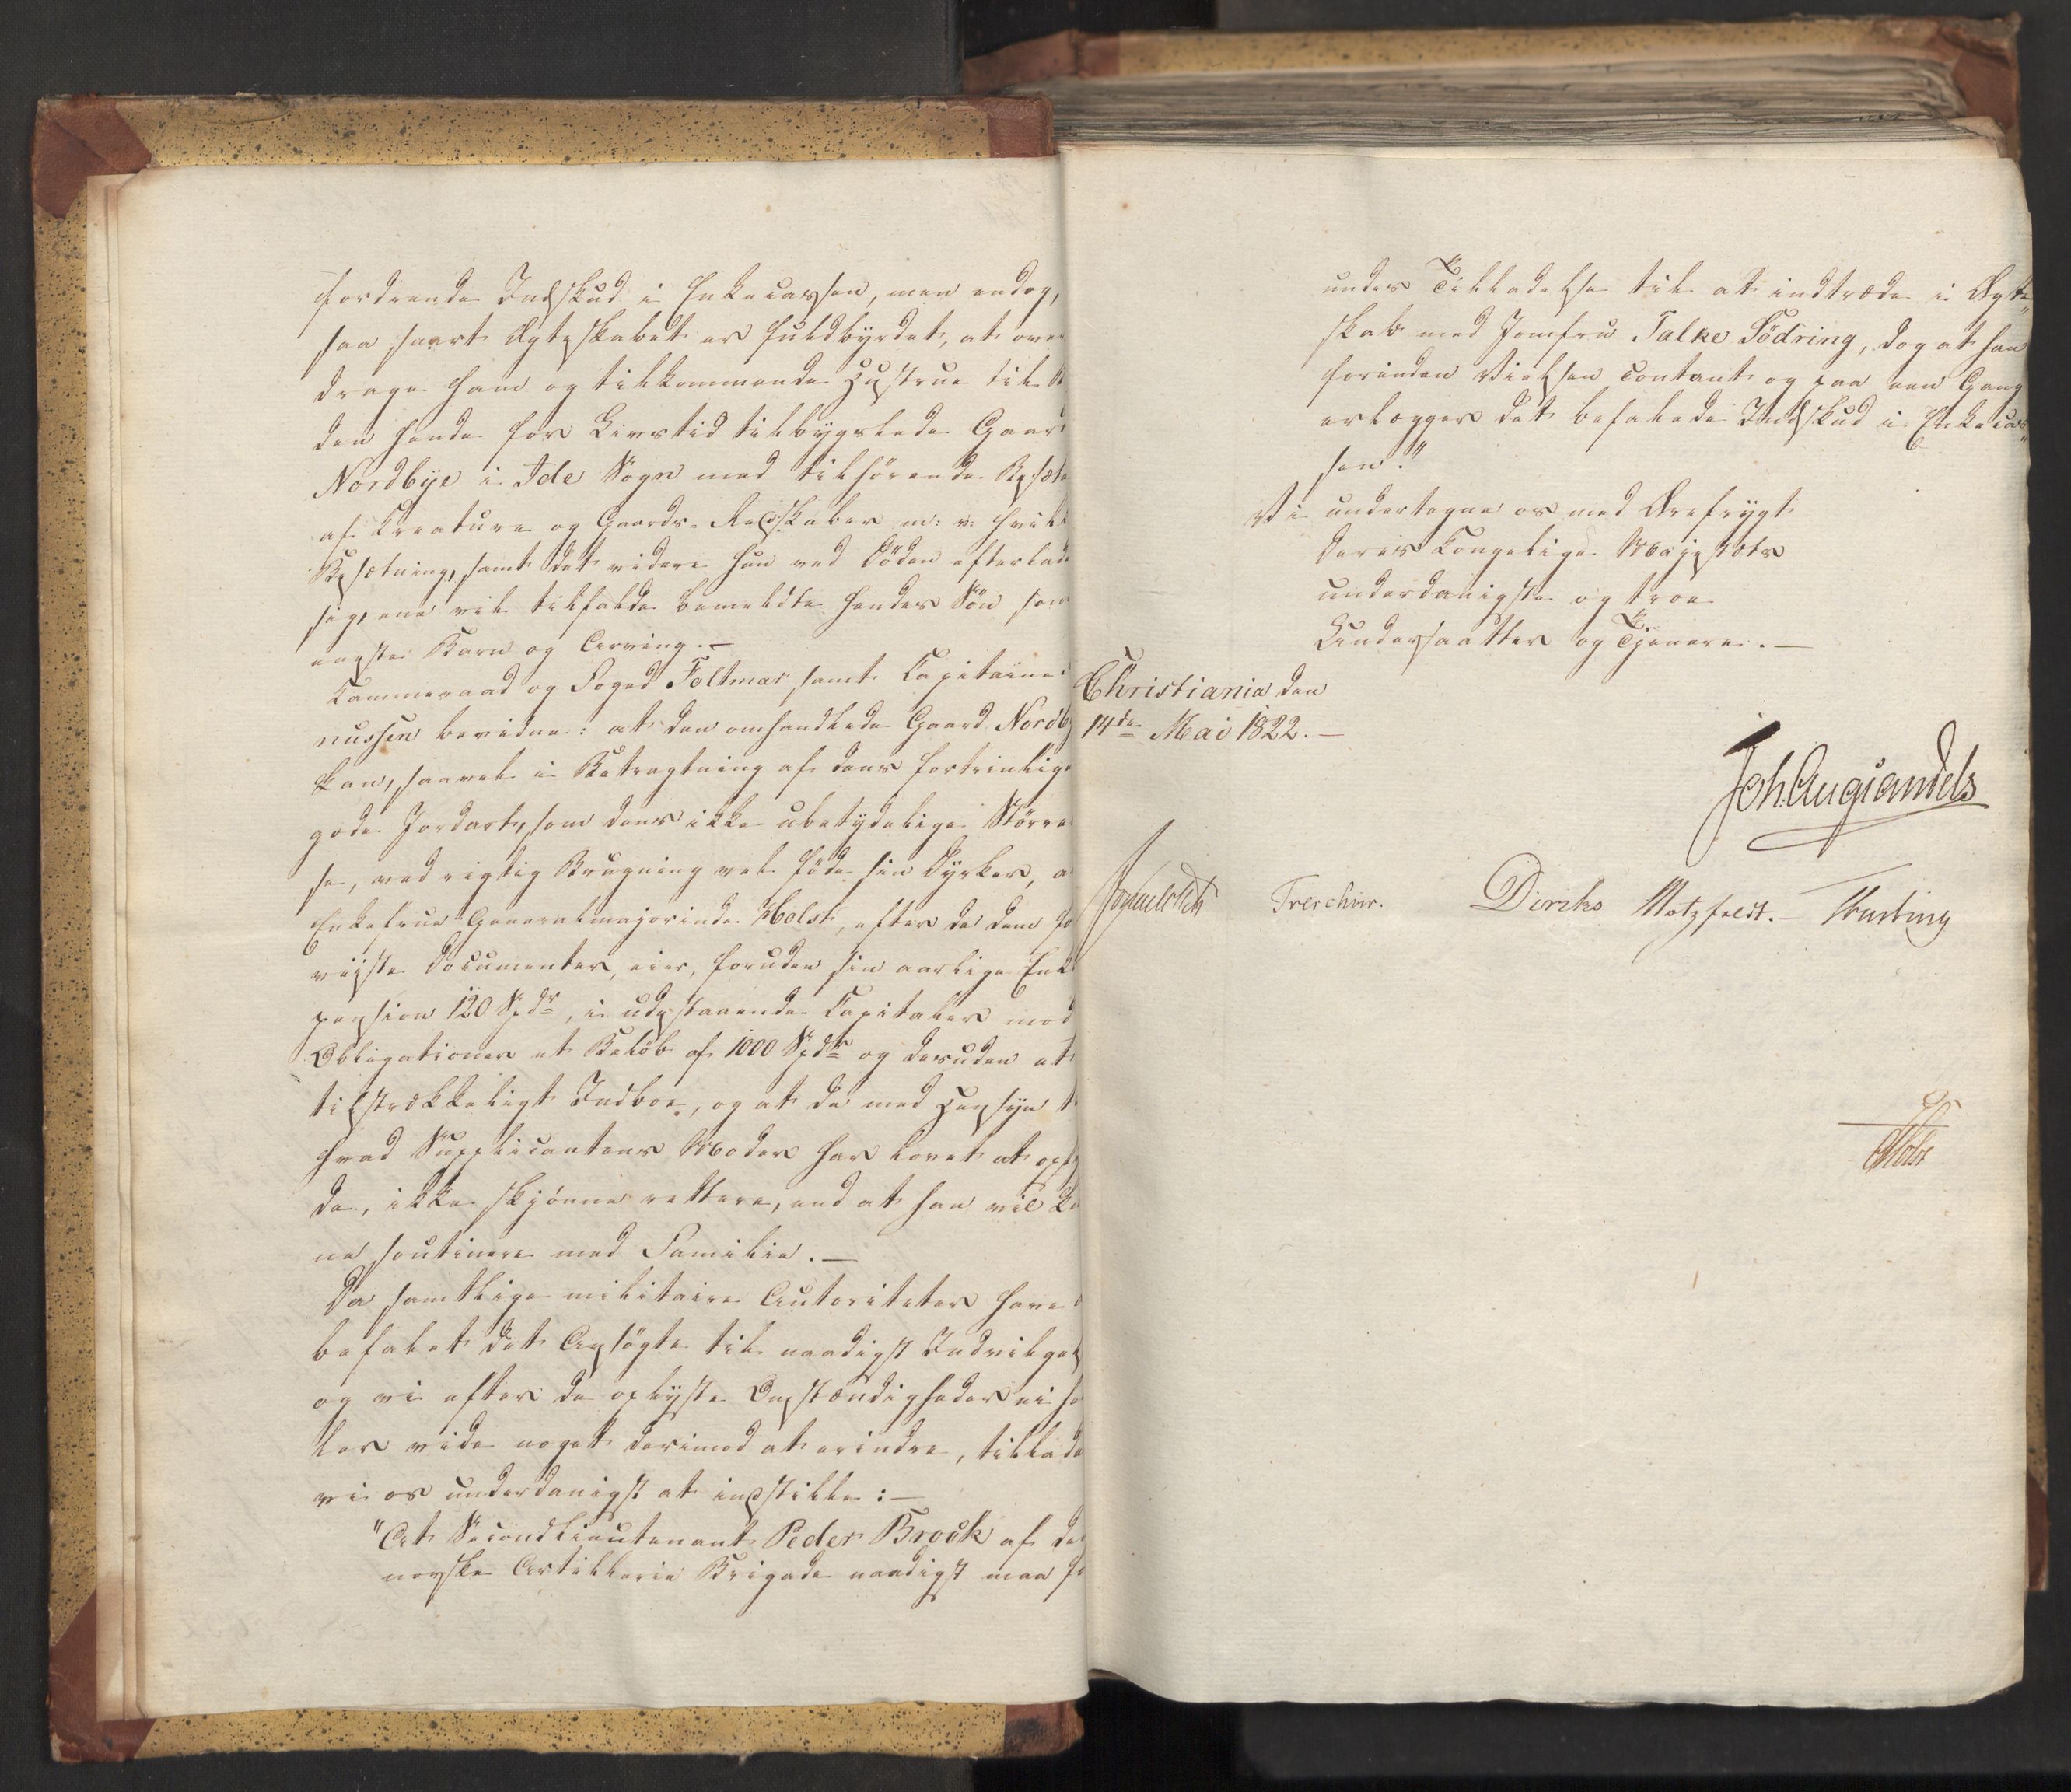 fordrende Indskud i Enkecassen, men endog,
saa snart Ægteskabet er fuldbyrdet, at over
drage ham og tilkommende Hustrue til B
den hende for Livstid tilbygslede Gaard
Nordbye i Ide Sogn med tilhørende Besæt
af Creature og Gaards-Redskaber m: v: hvilk
Besætning, samt det videre hun ved Döden efterlade
sig, ene vil tilfalde bemeldte hendes Sön som
eneste Barn og Arving. –
Kammeraad og Foged Foltmar samt Capitaine
nussen bevidne: at den omhandlede Gaard Nordby
kan, saavel i Betragtning af dens fortrinlige
gode Jordart, som dens ikke ubetydelige Större
se, ved rigtig Brugning vel föde sin Dyrker, a
Enkefrue Generalmajorinde Holst, efter de dem fo
reviiste Documenter, eier, foruden sin aarlige Enke
pension 120 Spdr, i udestaaende Capitaler mod
Obligationer et Belöb af 1000 Spdr og desuden et
tilstrækkeligt Indboe, og at de med Hensyn t
hvad Supplicantens Moder har lovet at opfy
de, ikke skjönne rettere, end at han vil ku
ne soutinere med Familie. –
Da samtlige militaire Autoriteter have
befalet det Ansögte til naadigst Indvilgel
og vi efter de oplyste Omstændigheder ei he
ler vide noget derimod at erindre, tillade
vi os underdanigst at indstille: –
"At Secondlieutenant Peder Brock af de
norske Artillerie Brigade naadigst maa fo
undes Tilladelse til at indtræde i Ægte„
skab med Jomfru Talke Södring, dog at han
forinden Vielsen contant og paa een Gang
erlægger det befalede Indskud i Enkecas„
sen."
Vi undertegne os med Ærefrygt
Deres Kongelige Majestæts
underdanigste og troe
Undersaatter og Tjenere. –
Christiania den
14de Mai 1822. –
Joh. Aug. Sandels
Sommerhielm Treschow. Diriks Motzfeldt. – Fasting
Holst